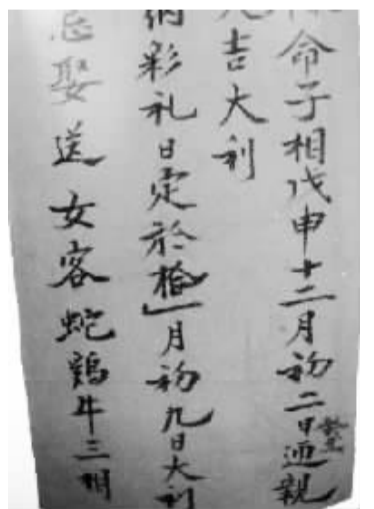 命子相戊申十二月初二日迎親
吉大利
納彩礼日定於拾一月初九日大利
忌娶送女客蛇鷄牛三相